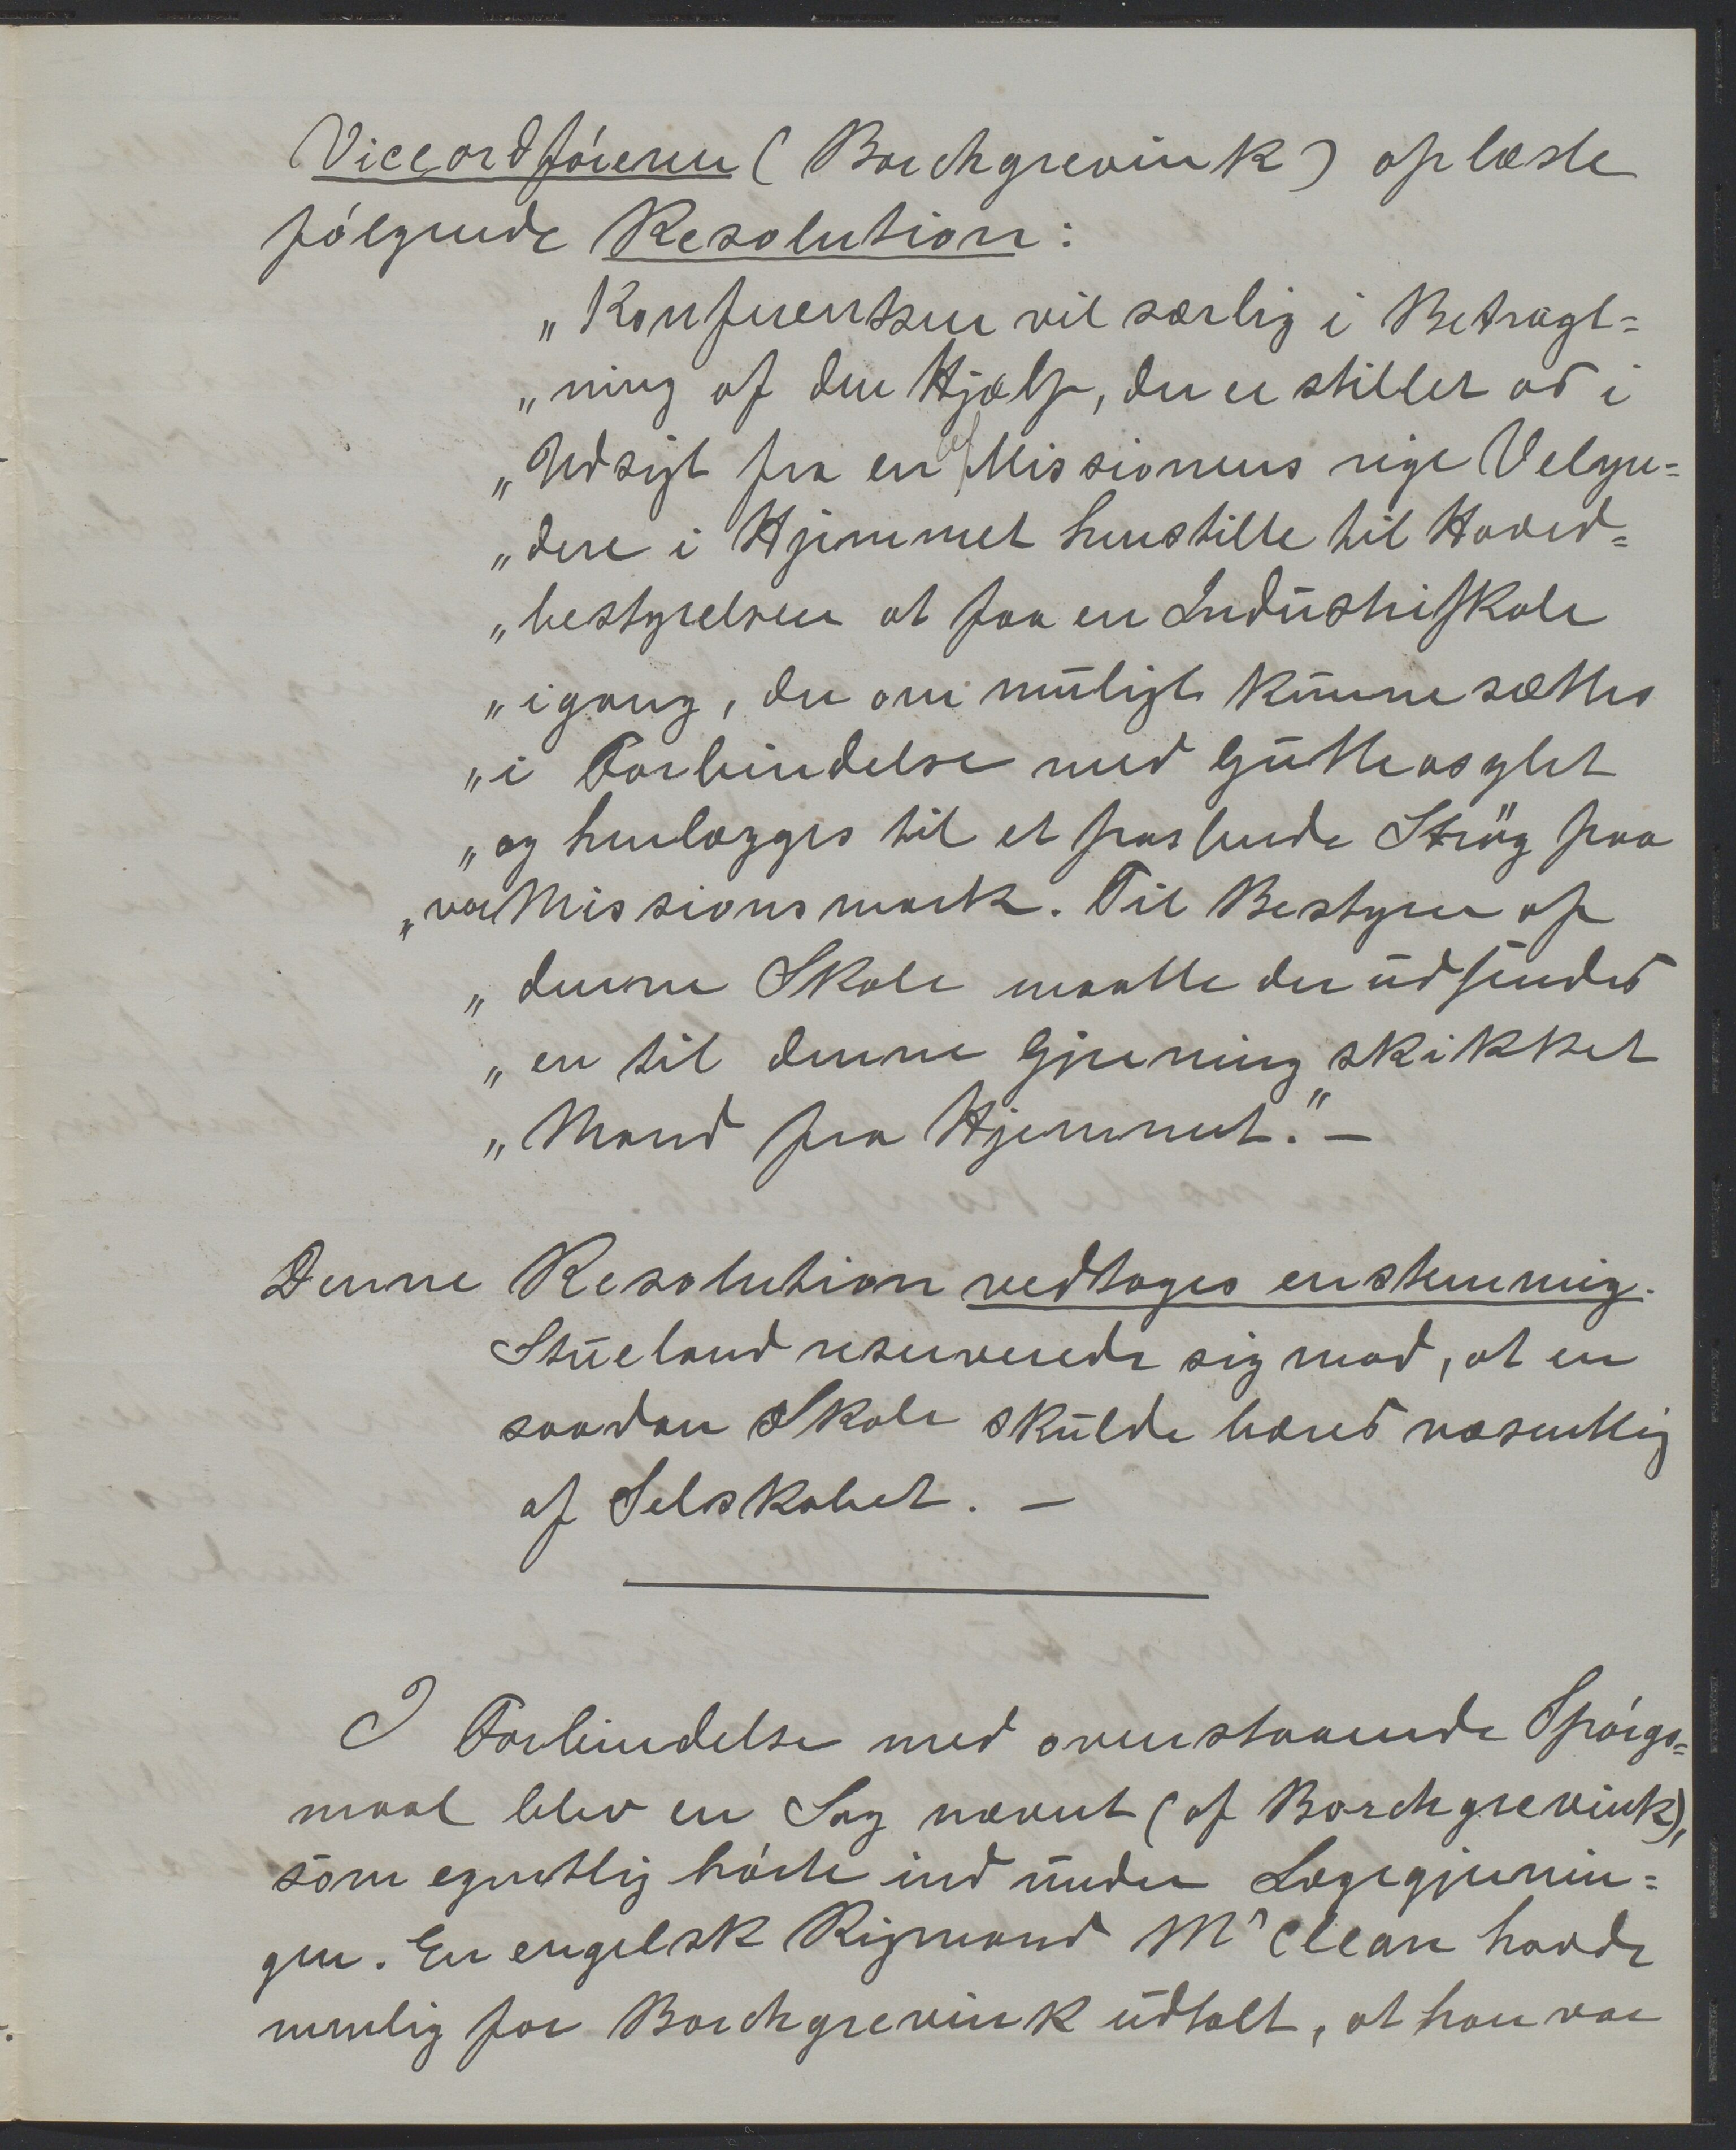 Viceordføreren (Borchgrevink) oplæste
følgende Resolution:
„Konferentsen vil særlig i Betragt=
„ning af den Hjælp, der er stillet os i
„Udsigt fra en af Missionens rige Velyn=
„dere i Hjemmet henstille til Hoved=
„bestyrelsen at faa en Industriskole
„igang, der om muligt kunne sættes
„i Forbindelse med Gutteasylet
„og henlægges til et passende Strøg paa
„vor Missionsmark. Til Bestyrer af
„denne Skole maatte der udsendes
„en til denne Gjerning skikket
„Mand fra Hjemmet." —
Denne Resolution vedtoges enstemmig.
Stueland reserverede sig mod, at en
saadan Skole skulde bæres væsentlig
af Selskabet. —
I Forbindelse med ovenstaaende Spørgs=
maal blev en Sag nævnt (af Borchgrevink),
som egentlig hørte ind under Lægegjernin=
gen. En engelsk Rigmand Mr Clean havde
nemlig for Borchgrevink udtalt, at han var